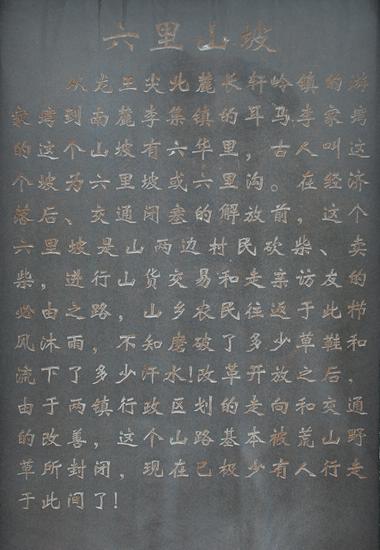 六里山坡
从龙王尖北麓长轩岭镇的游
家湾到南麓李集镇的耳马李家湾
的这个山坡有六华里，古人叫这
个坡为六里坡或六里沟。在经济
落后、交通闭塞的解放前，这个
六里坡是山两边村民砍柴、卖
柴，进行山货交易和走亲访友的
必由之路，山乡农民往返于此栉
风沐雨，不知磨破了多少草鞋和
流下了多少汗水！改革开放之后，
由于两镇行政区划的走向和交通
的改善，这个山路基本被荒山野
草所封闭，现在已极少有人行走
于此间了！